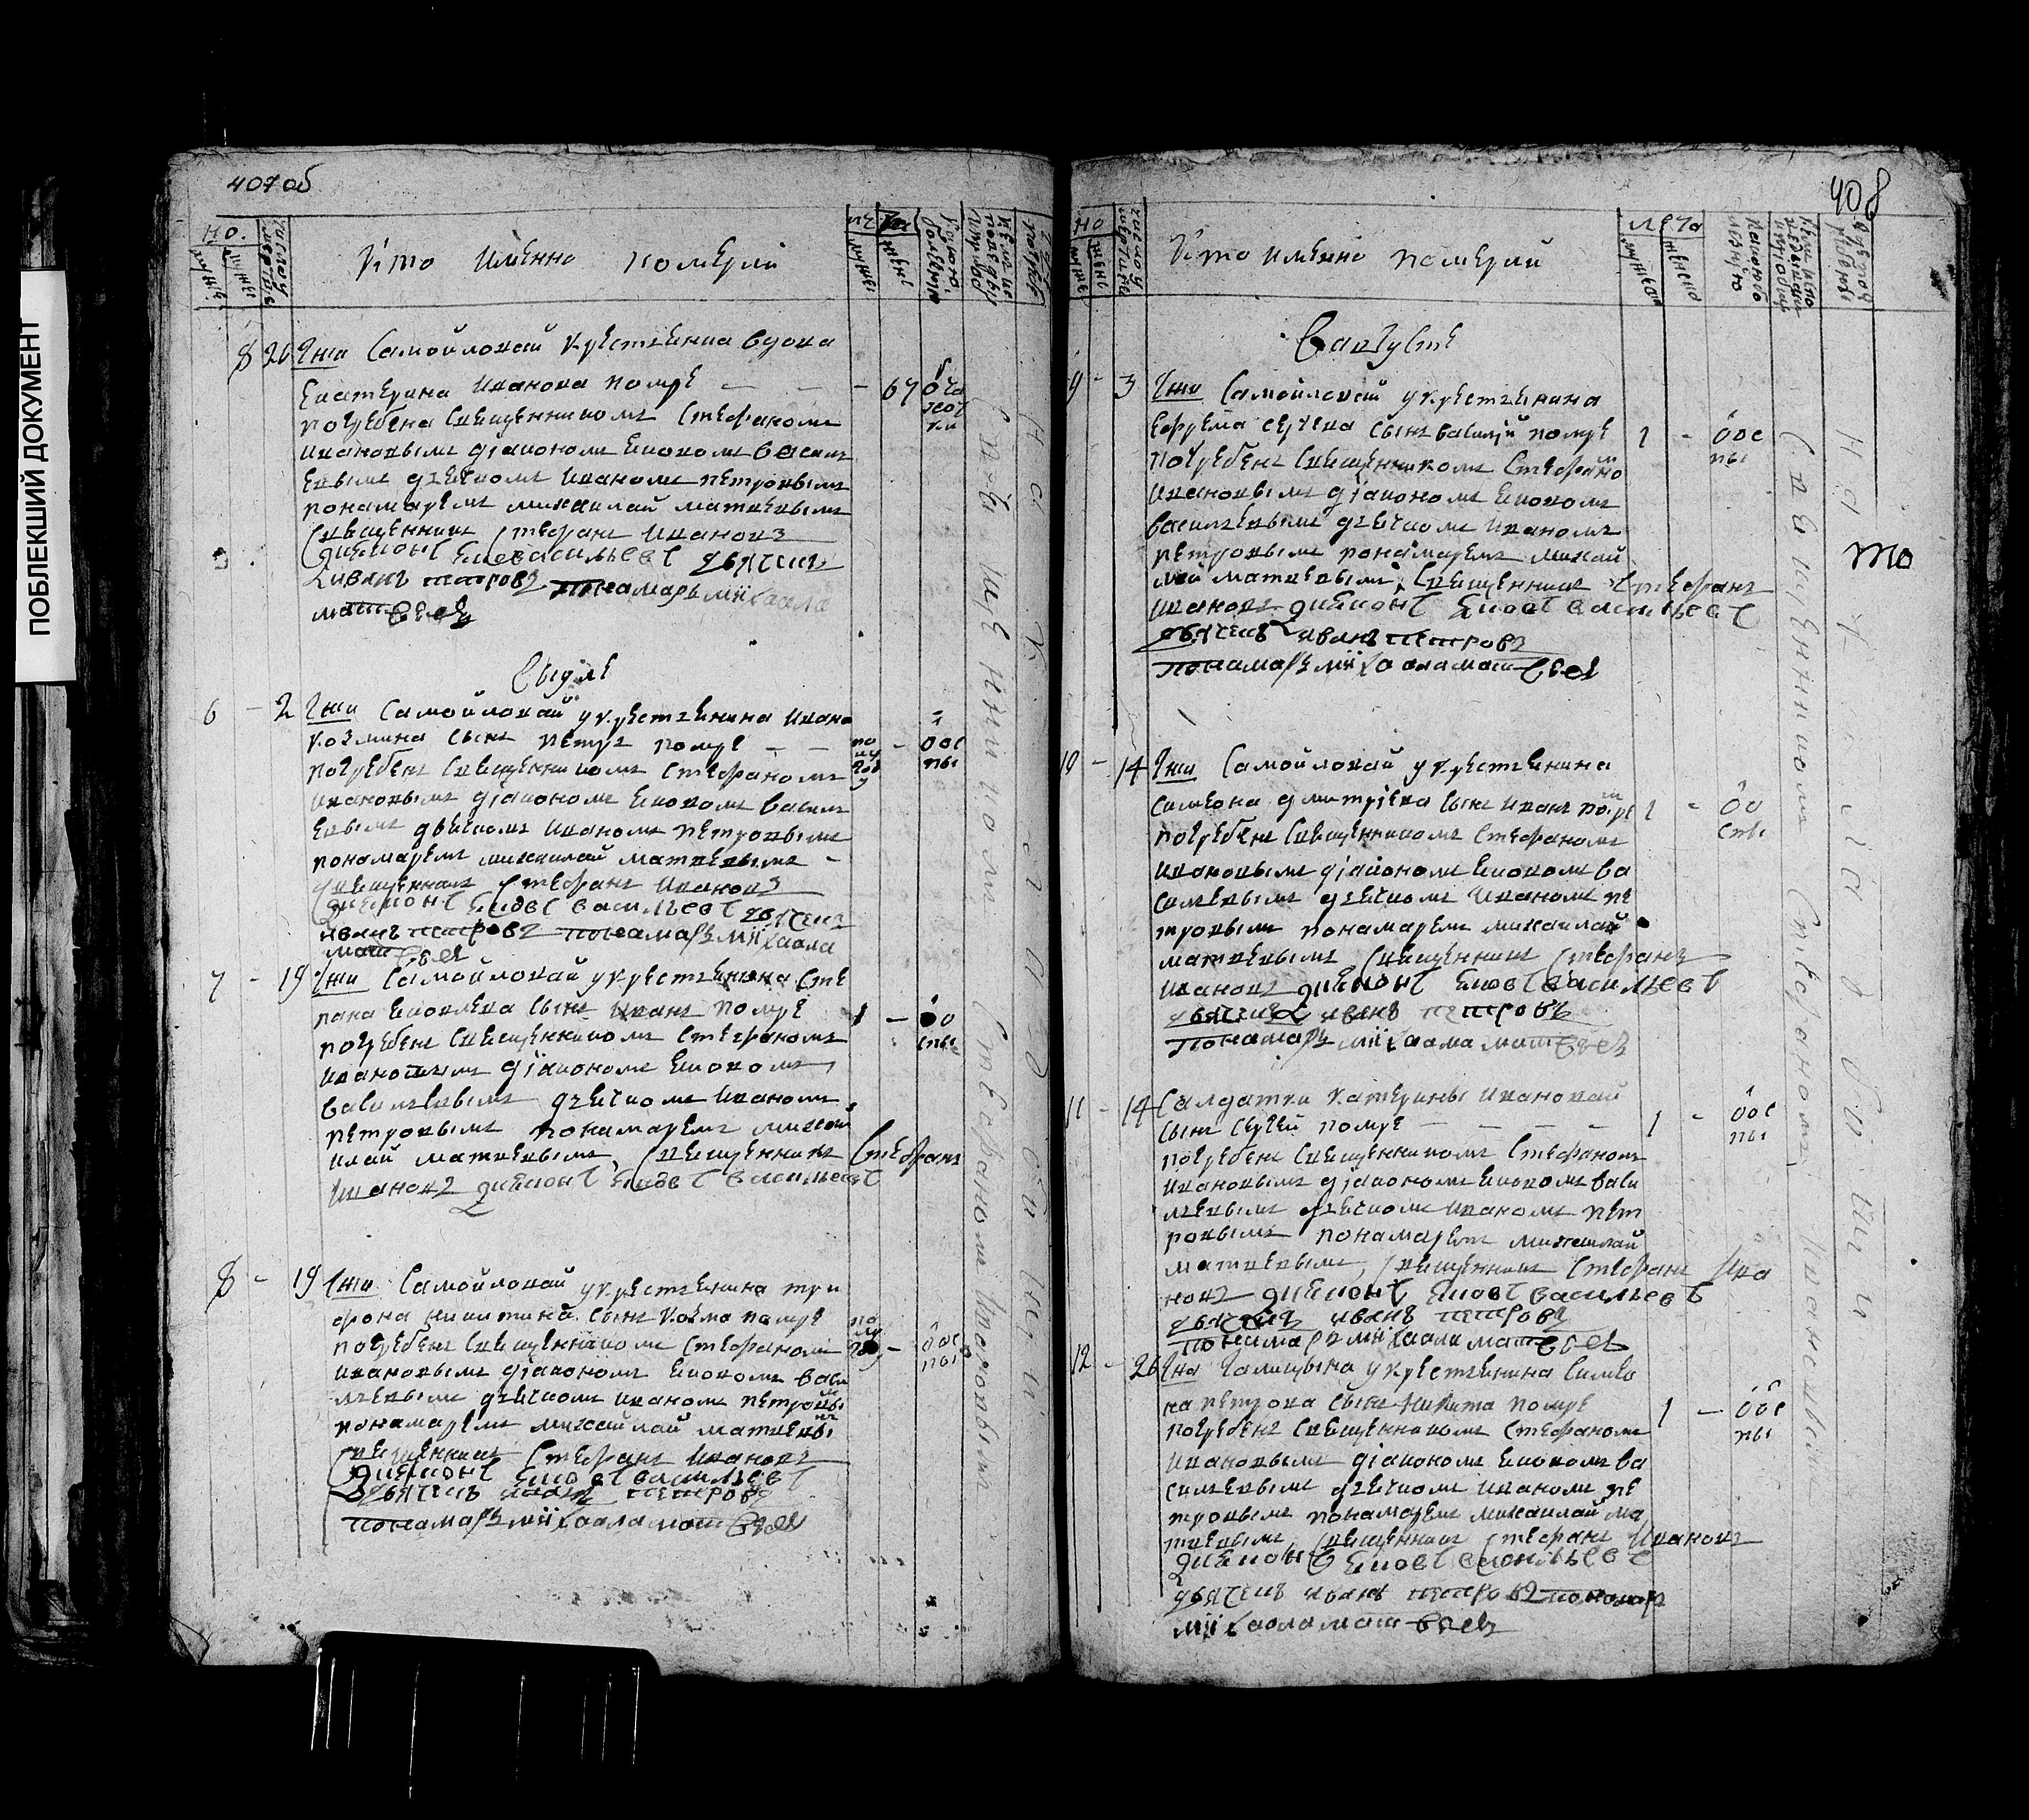 ПОБЛЕКШИЙ ДОКУМЕНТ
407 об
Кто имянно померли
8 26 Гжи Самойловай крестьянка вдова
Екатерина Иванова помре — — — 67
погребена священником Стефаном
Ивановым диаконом Иаковом Васил
евым дьячком Иваном Петровым
понамарем Михаилай Матвевым
священник Стефан Иванов
диякон Яков Васильев дьячек
Иван Петров понамарь Михаала
Матвеев
В июле
6 - 2 Гжи Самойловай у крестьянина Ивана
Козмина сын Петр помре — — по
лу
году - ос
пы
погребен священником Стефаном
Ивановым диаконом Иаковом Васил
евым дьячком Иваном Петровым
понамарем Михаилай Матвевым -
священник Стефан Иванов
диякон Яков Васильев дьячек
Иван Петров понамарь Михаала
Матвеев
7 - 19 Гжи Самойловай у крестьянина Сте
пана Яковлева сын Иван помре 1 — о
спы
погребен священником Стефаном
Ивановым диаконом Иаковом
Васильевым дьячком Иваном
Петровым понамарем Миха
илай Матвевым священник Стефан
Иванов диякон Яков Васильев
8 - 19 Гжи Самойловай у крестьянина Три
фона Никитина сын Козма помре
погребен священником Стефаном
Ивановым диаконом Иаковом Васи
льевым дьячком Иваном Петровы
понамарем Михаилай Матвевы
священник Стефан Иванов
диякон Яков Васильев
дьячек Иван Петров
понамарь Михаала Матвеев
Священником Стефаном Ивановым
408
Кто имянно померли
В августе
9 - 3 Гжи Самойловай у крестьянина
Ефрема Сергева сын Василий помре 1 - ос
пы
погребен священником Стефаном
Ивановым диаконом Иаковом
Васильевым дьячком Иваном
Петровым понамарем Михай
лай Матвевым священник Стефан
Иванов диякон Яков Васильев
дьячек Иван Петров
понамарь Михаала Матвеев
10 - 14 Гжи Самойловай у крестьянина
Симеона Дмитриева сын Иван помре 1 - о
спы
погребен священником Стефаном
Ивановым диаконом Иаковом Ва
сильевым дьячком Иваном Пе
тровым понамарем Михаилай
Матвевым священник Стефан
Иванов диякон Яков Васильев
дьячек Иван Петров
понамарь Михаала Матвеев
11 - 14 Салдатки Катерины Ивановай
сын Сергей помре — — — — 1 - ос
пы
погребен священником Стефаном
Ивановым диаконом Иаковом Васи
льевым дьячком Иваном Пет
ровым понамарем Михаилай
Матвевым священник Стефан Ива
нов диякон Яков Васильев
дьячек Иван Петров
понамарь Михаала Матвеев
12 - 26 Гна Галицына у крестьянина Симео
на Петрова сын Никита помре 1 — ос
пы
погребен священником Стефаном
Ивановым диаконом Иаковом Ва
сильевым дьячком Иваном Пе
тровым понамарем Михаилай Ма
твевым священник Стефан Иванов
диякон Яков Васильев
дьячек Иван Петров понамар
Михаала Матвеев
Священником Стефаном Ивановым
то